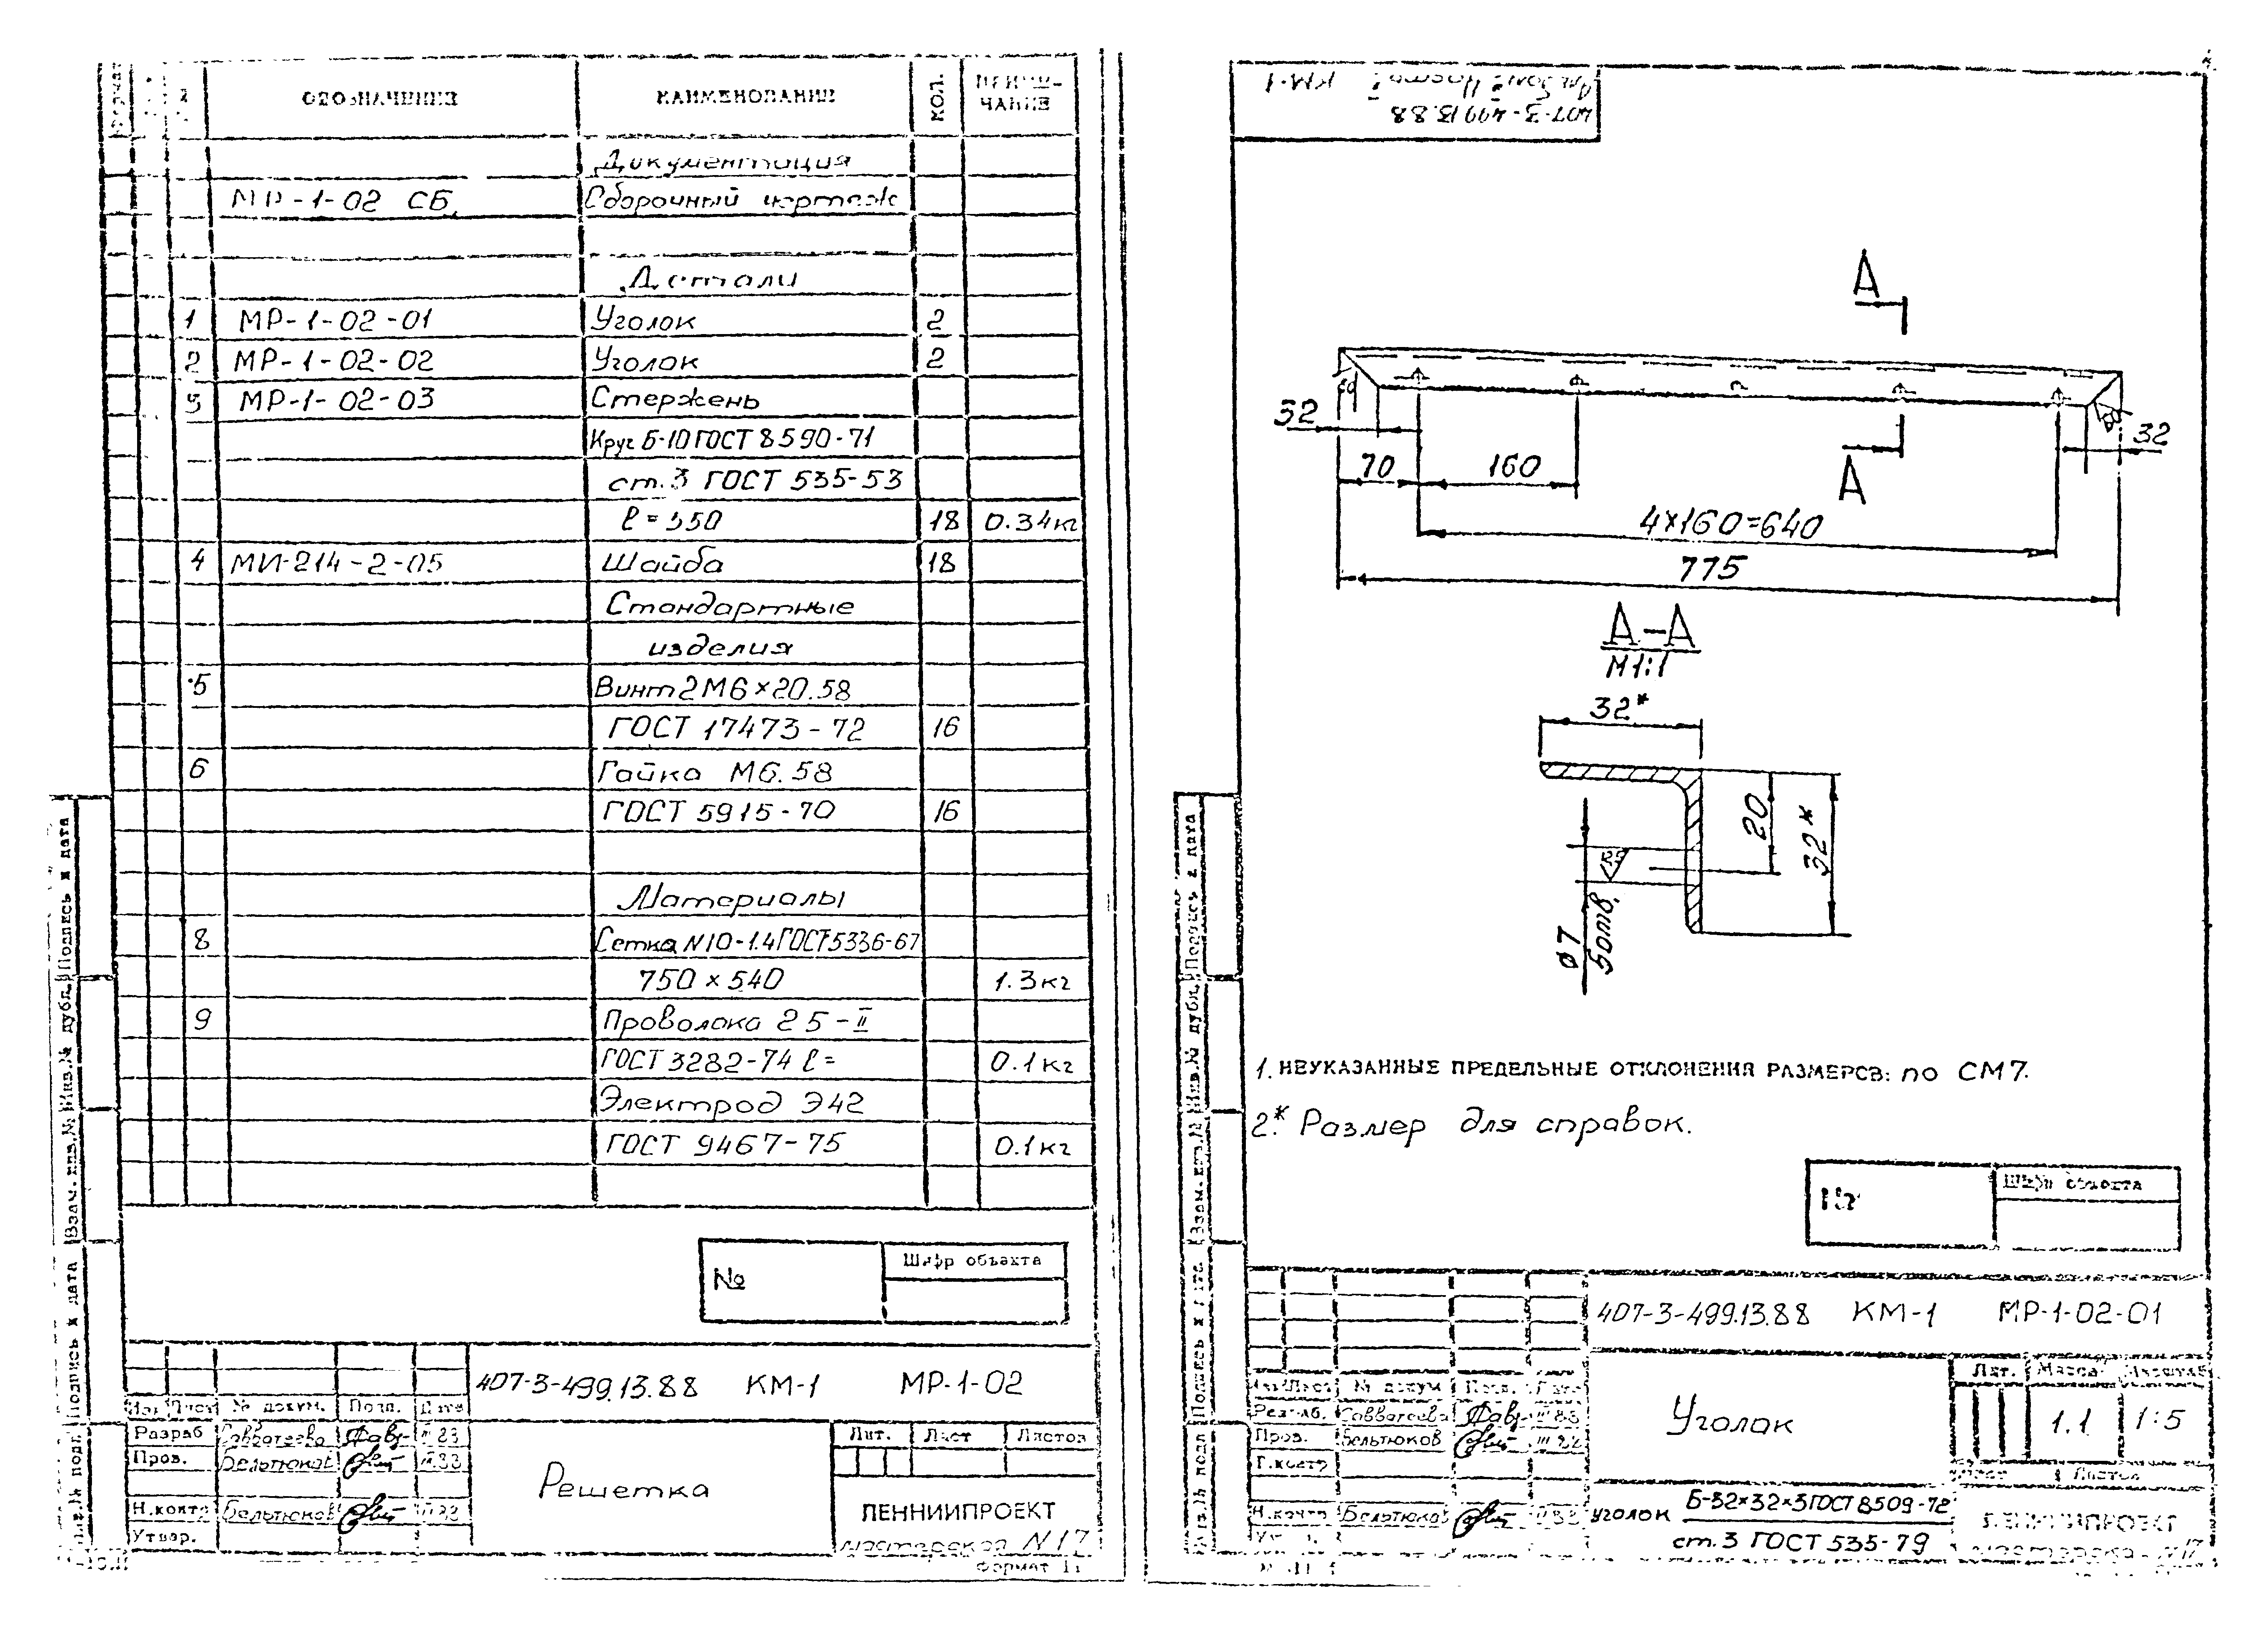 ОБОЗНАЧЕНИЕ НАИМЕНОВАНИЕ КОЛ. ПРИМЕ-
ЧАНИЕ
Документация
МР-1-02 СБ. Сборочный чертеж
Детали
1 МР-1-02-01 Уголок 2
2 МР-1-02-02 Уголок 2
3 МР-1-02-03 Стержень
Круг Б-10 ГОСТ 8590-71
ст.3 ГОСТ 535-53
ℓ=550 18 0.34кг
4 МИ-214-2-05 Шайба 18
Стандартные
изделия
5 Винт 2М6×20.58
ГОСТ 17473-72 16
6 Гайка М6.58
ГОСТ 5915-70 16
Материалы
8 Сетка N10-1.4 ГОСТ 5336-67
750×540 1.3кг
9 Проволока 25-II
ГОСТ 3282-74 ℓ= 0.1кг
Электрод Э42
ГОСТ 9467-75 0.1кг
№ Шифр объекта
407-3-499.13.88 КМ-1 МР-1-02
Изм. Лист № докум. Подп. Дата
Разраб Савватеева III 83
Пров. Бельтюков III 83
Н.контр Бельтюков
Утвер.
Решетка
Лит. Лист Листов
ЛЕННИИПРОЕКТ
мастерская N17
Формат 11
Подпись и дата
Инв.№ дубл.
Взам.инв.№
Подпись и дата
Инв.№ подл
407-3-499.13.88
Альбом Часть КМ-1
А
32
70
160
32
А
4×160=640
775
А-А
М1:1
32*
20
32*
ø7
5отв.
1. НЕУКАЗАННЫЕ ПРЕДЕЛЬНЫЕ ОТКЛОНЕНИЯ РАЗМЕРОВ: по СМ7.
2.* Размер для справок.
№ Шифр объекта
407-3-499.13.88 КМ-1 МР-1-02-01
Изм. Лист № докум Подп. Дата
Разраб. Савватеева
Пров. Бельтюков
Т.контр
Н.контр Бельтюков
Уголок
Лит. Масса Масштаб
1.1 1:5
Лист Листов
уголок Б-32×32×3 ГОСТ 8509-72
ст.3 ГОСТ 535-79
ЛЕННИИПРОЕКТ
мастерская N17
Подпись и дата
Инв.№ дубл.
Взам.инв.№
Подпись и дата
Инв.№ подл